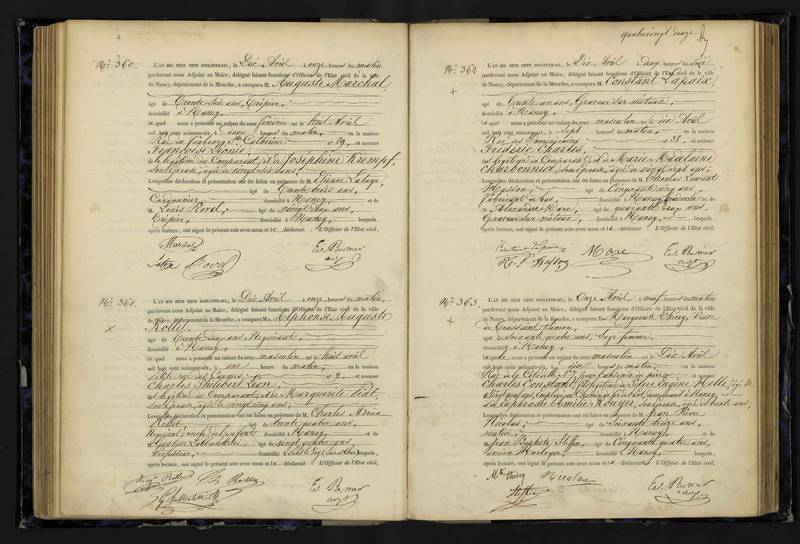 Nº 360.
L'AN MIL HUIT CENT SOIXANTE-DIX, le Dix Avril à onze heures du matin
pardevant nous Adjoint au Maire, délégué faisant fonctions d'Officier de l'Etat civil de la ville
de Nancy, département de la Meurthe, a comparu M. Auguste Marchal,
âgé de Trente six ans, Crépier,
domicilié à Nancy,
lequel nous a présenté un enfant du sexe féminin né le huit Avril
mil huit cent soixante-dix, à deux heures du matin, en la maison
Rue du faubourg Ste Catherine nº 39, et nommé
Françoise Léonie,
de la légitime du Comparant et de Joséphine Krempf,
son épouse, âgée de vingt six ans.
Lesquelles déclaration et présentation ont été faites en présence de M. Etienne
âgé de Trente trois ans,
Cordonnier, domicilié à Nancy, et de
M. Louis âgé de vingt deux ans,
Crépier, domicilié à Nancy, lesquels,
après lecture, ont signé le présent acte avec nous et le déclarant. L'Officier de l'Etat civil,
Nº 361.
L'AN MIL HUIT CENT SOIXANTE-DIX, le Dix Avril à onze heures du matin,
pardevant nous Adjoint au Maire, délégué faisant fonctions d'Officier de l'Etat civil de la ville
de Nancy, département de la Meurthe, a comparu M. Alphonse Auguste
Rollet,
âgé de Trente deux ans, Négociant,
domicilié à Nancy,
lequel nous a présenté un enfant du sexe masculin né le huit avril
mil huit cent soixante-dix, à une heure du matin, en la maison
rue des Carmes nº 9, et nommé
Charles Philibert Léon,
né légitime du Comparant et de Marguerite
son épouse, âgée de vingt cinq ans.
Lesquelles déclaration et présentation ont été faites en présence de M. Charles Adrien
Rollet, âgé de trente quatre ans,
Négociant, oncle de l'enfant, domicilié à Nancy, et de
M. Gustave âgé de vingt quatre ans,
Professeur, domicilié à lesquels,
après lecture, ont signé le présent acte avec nous et le déclarant. L'Officier de l'Etat civil,
quatrevingt douze
Nº 362
L'AN MIL HUIT CENT SOIXANTE-DIX, le Dix Avril à deux heures du soir
pardevant nous Adjoint au Maire, délégué faisant fonctions d'Officier de l'Etat civil de la ville
de Nancy, département de la Meurthe, a comparu M. Constant Lapaix,
âgé de Trente un ans, Graveur sur métaux,
domicilié à Nancy,
lequel nous a présenté un enfant du sexe masculin né le dix Avril
mil huit cent soixante-dix, à sept heures du matin, en la maison
Rue des Dominicains nº 28, et nommé
Frédéric Charles,
né légitime du Comparant et de Marie Madelaine
Charbonnier, son épouse, âgée de vingt sept ans,
Lesquelles déclaration et présentation ont été faites en présence de M. Nicolas Laurent
Husson, âgé de Cinquante cinq ans,
Fabricant de bas, domicilié à Nancy, et de
M. Alexandre More, âgé de quarante deux ans,
Graveur sur métaux, domicilié à Nancy, lesquels,
après lecture, ont signé le présent acte avec nous et le déclarant. L'Officier de l'Etat civil,
More
Nº 363
L'AN MIL HUIT CENT SOIXANTE-DIX, le Onze Avril à neuf heures du matin
pardevant nous Adjoint au Maire, délégué faisant fonctions d'Officier de l'Etat civil de la ville
de Nancy, département de la Meurthe, a comparu M. Marguerite Thiéry, Veuve
de Toussaint Simon,
âgé de Soixante quatre ans, Sage femme,
domicilié à Nancy,
lequel nous a présenté un enfant du sexe masculin né le Dix Avril
mil huit cent soixante-dix, à dix heures du matin, en la maison
Charles Constant, fils légitime de Pierre Eugène
son épouse, âgée de trente ans,
Lesquelles déclaration et présentation ont été faites en présence de M. Jean Pierre
Nicolas, âgé de Soixante treize ans,
rentier, domicilié à Nancy, et de
M. Jean Baptiste Steffin, âgé de Cinquante quatre ans,
ancien Horloger, domicilié à Nancy, lesquels,
après lecture, ont signé le présent acte avec nous et le déclarant. L'Officier de l'Etat civil,
Nicolas